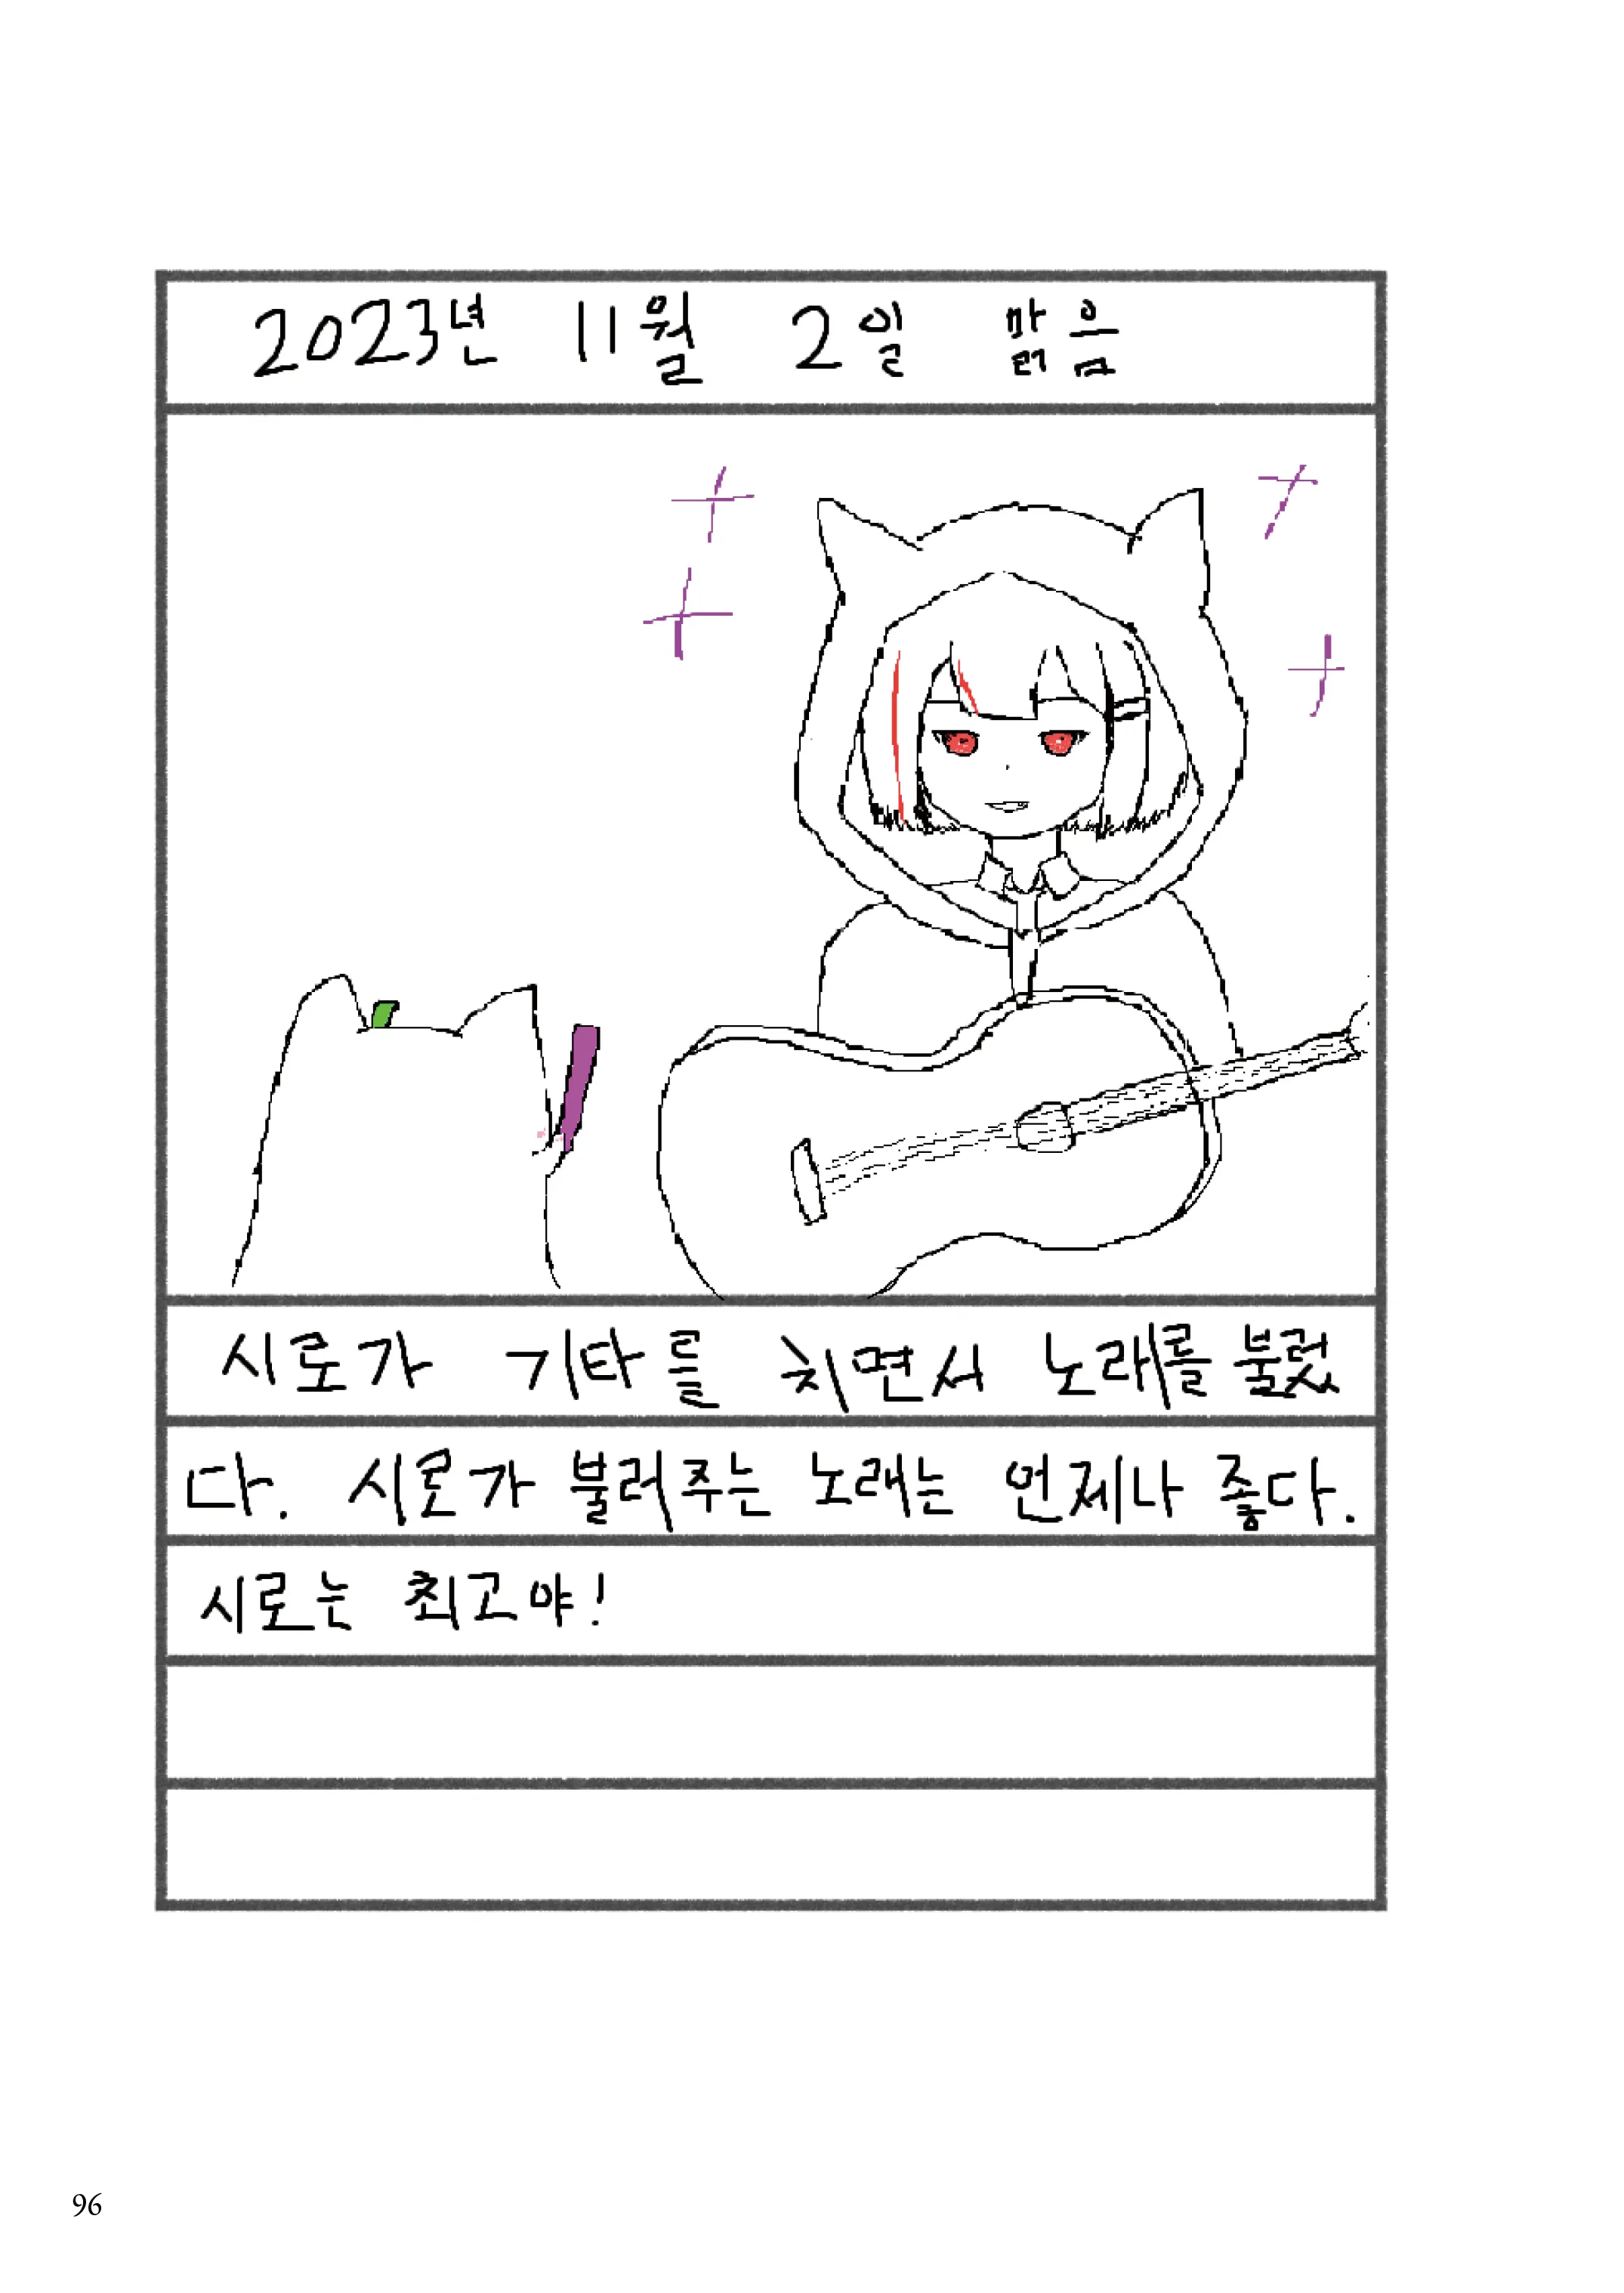 2023년 11월 2일 맑음
시로가 기타를 치면서 노래를 불렀
다. 시로가 불러주는 노래는 언제나 좋다.
시로는 최고야!
96